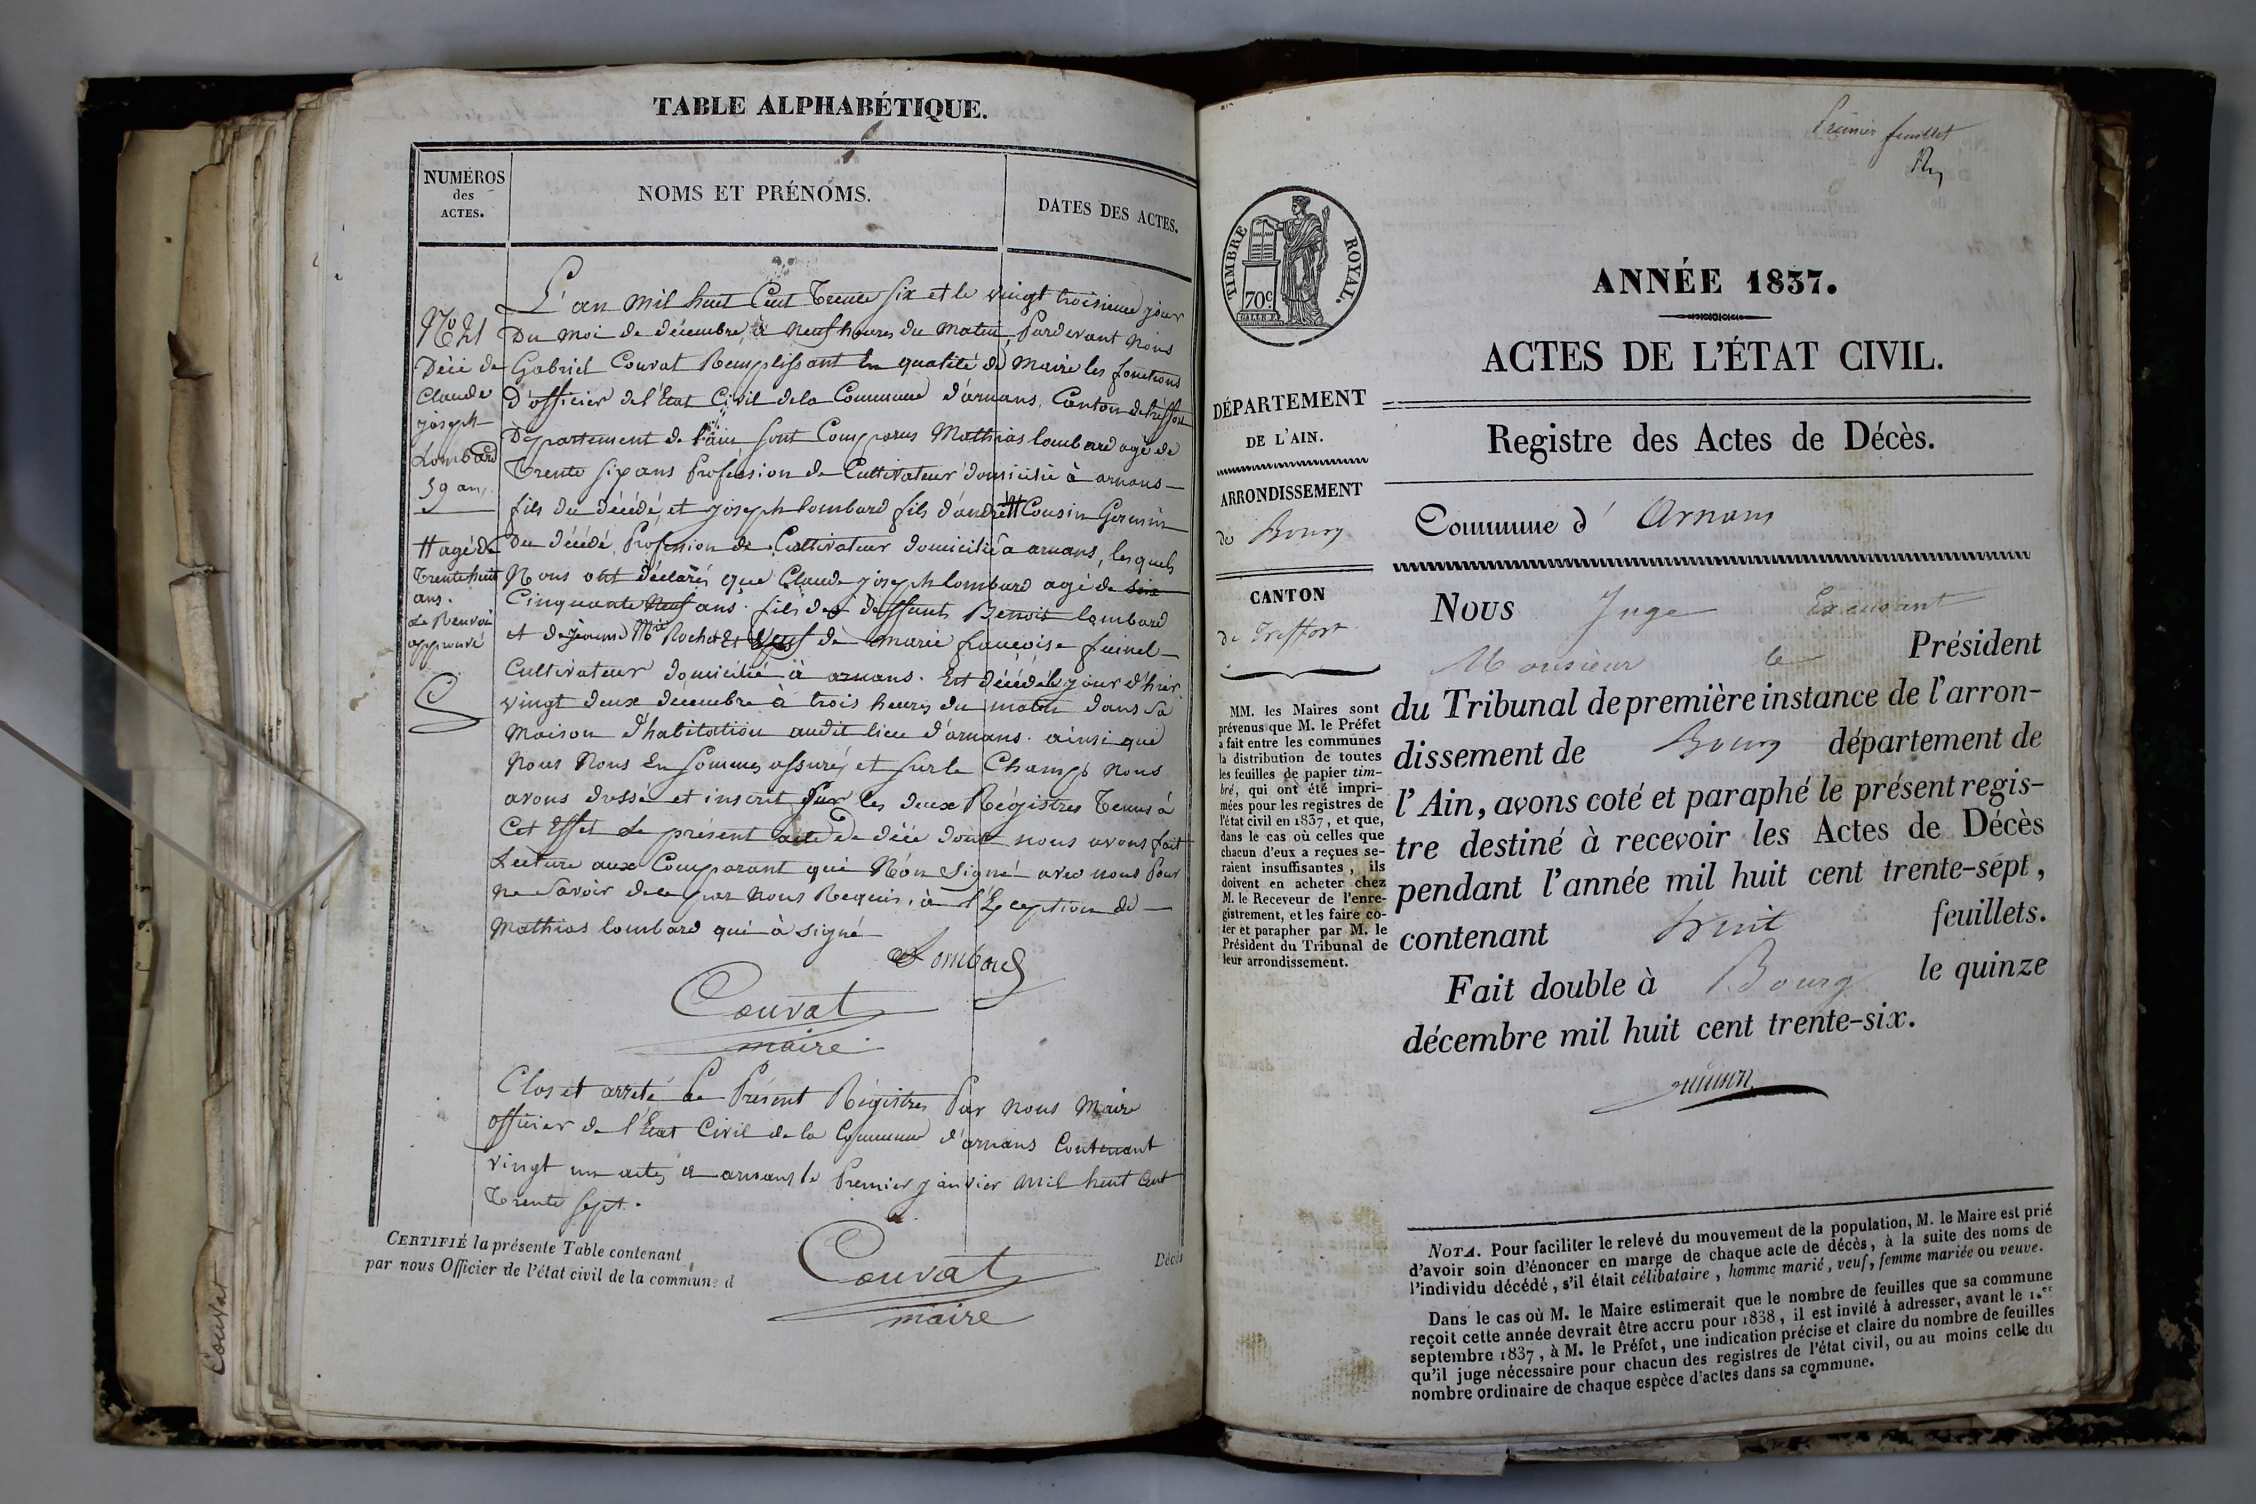 TABLE ALPHABÉTIQUE.
NUMÉROS
des
ACTES.
NOMS ET PRÉNOMS.
DATES DES ACTES.
No 21
Décé de
Claude
joseph
Lombard
59 ans
# agé de
Trente huit
ans.
Le Renvoi
approuvé
L'an mil huit Cent Trente six et le vingt troisieme jour
Du moi de décembre, à neuf heures du Matin, Pardevant Nous
Gabriel Couvat Remplissant En qualité de Maire les fonctions
D'officier de l'Etat Civil de la Commune d'arnans, Canton de treffort
Département de l'ain sont Comparus Mathias lombard agé de
Trente six ans Profession de Cultivateur domicilié à arnans
fils du décédé, et joseph lombard fils d'andré # Cousin Germin
Du décédé, Profession de Cultivateur domicilié a arnans, lesquels
Nous ont déclarés que Claude joseph lombard agé de
Cinquante Neuf ans fils des deffunts Benoit lombard
et de jeanne Mie Rochet Et Veuf de marie françoise
Cultivateur domicilié à arnans. Est décédé le jour d'hier
vingt deux décembre à trois heures du matin dans sa
Maison d'habitation audit lieu d'arnans. ainsi que
Nous Nous En sommes assurés et sur le Champs nous
avons dressé et inscrit sur les deux Régistres Tenus à
Cet Effet Le présent acte de décé dont nous avons fait
Lecture aux Comparant qui Non Signé avec nous Pour
ne Savoir de ce par nous Requis, à l'Exception de
Mathias lombard qui à signé
Lombard
Couvat
maire
Clos et arreté Le Présent Régistres Par nous Maire
officier de l'Etat Civil de la Commune d'arnans Contenant
vingt un actes a arnans le Premier janvier mil huit Cent
Trente sept.
Couvat
maire
CERTIFIÉ la présente Table contenant
par nous Officier de l'état civil de la commune d
Décès
Couvat
Premier feuillet
TIMBRE ROYAL.
70c.
DÉPARTEMENT
DE L'AIN.
ARRONDISSEMENT
de Bourg
CANTON
de Treffort
MM. les Maires sont
prévenus que M. le Préfet
a fait entre les communes
la distribution de toutes
les feuilles de papier tim-
bré, qui ont été impri-
mées pour les registres de
l'état civil en 1837, et que,
dans le cas où celles que
chacun d'eux a reçues se-
raient insuffisantes, ils
doivent en acheter chez
M. le Receveur de l'enre-
gistrement, et les faire co-
ter et parapher par M. le
Président du Tribunal de
leur arrondissement.
ANNÉE 1837.
ACTES DE L'ÉTAT CIVIL.
Registre des Actes de Décès.
Commune d' Arnans
NOUS Juge
Monsieur le Président
du Tribunal de première instance de l'arron-
dissement de Bourg département de
l'Ain, avons coté et paraphé le présent regis-
tre destiné à recevoir les Actes de Décès
pendant l'année mil huit cent trente-sept,
contenant huit feuillets.
Fait double à Bourg le quinze
décembre mil huit cent trente-six.
NOTA. Pour faciliter le relevé du mouvement de la population, M. le Maire est prié
d'avoir soin d'énoncer en marge de chaque acte de décès, à la suite des noms de
l'individu décédé, s'il était célibataire, homme marié, veuf, femme mariée ou veuve.
Dans le cas où M. le Maire estimerait que le nombre de feuilles que sa commune
reçoit cette année devrait être accru pour 1838, il est invité à adresser, avant le 1.er
septembre 1837, à M. le Préfet, une indication précise et claire du nombre de feuilles
qu'il juge nécessaire pour chacun des registres de l'état civil, ou au moins celle du
nombre ordinaire de chaque espèce d'actes dans sa commune.